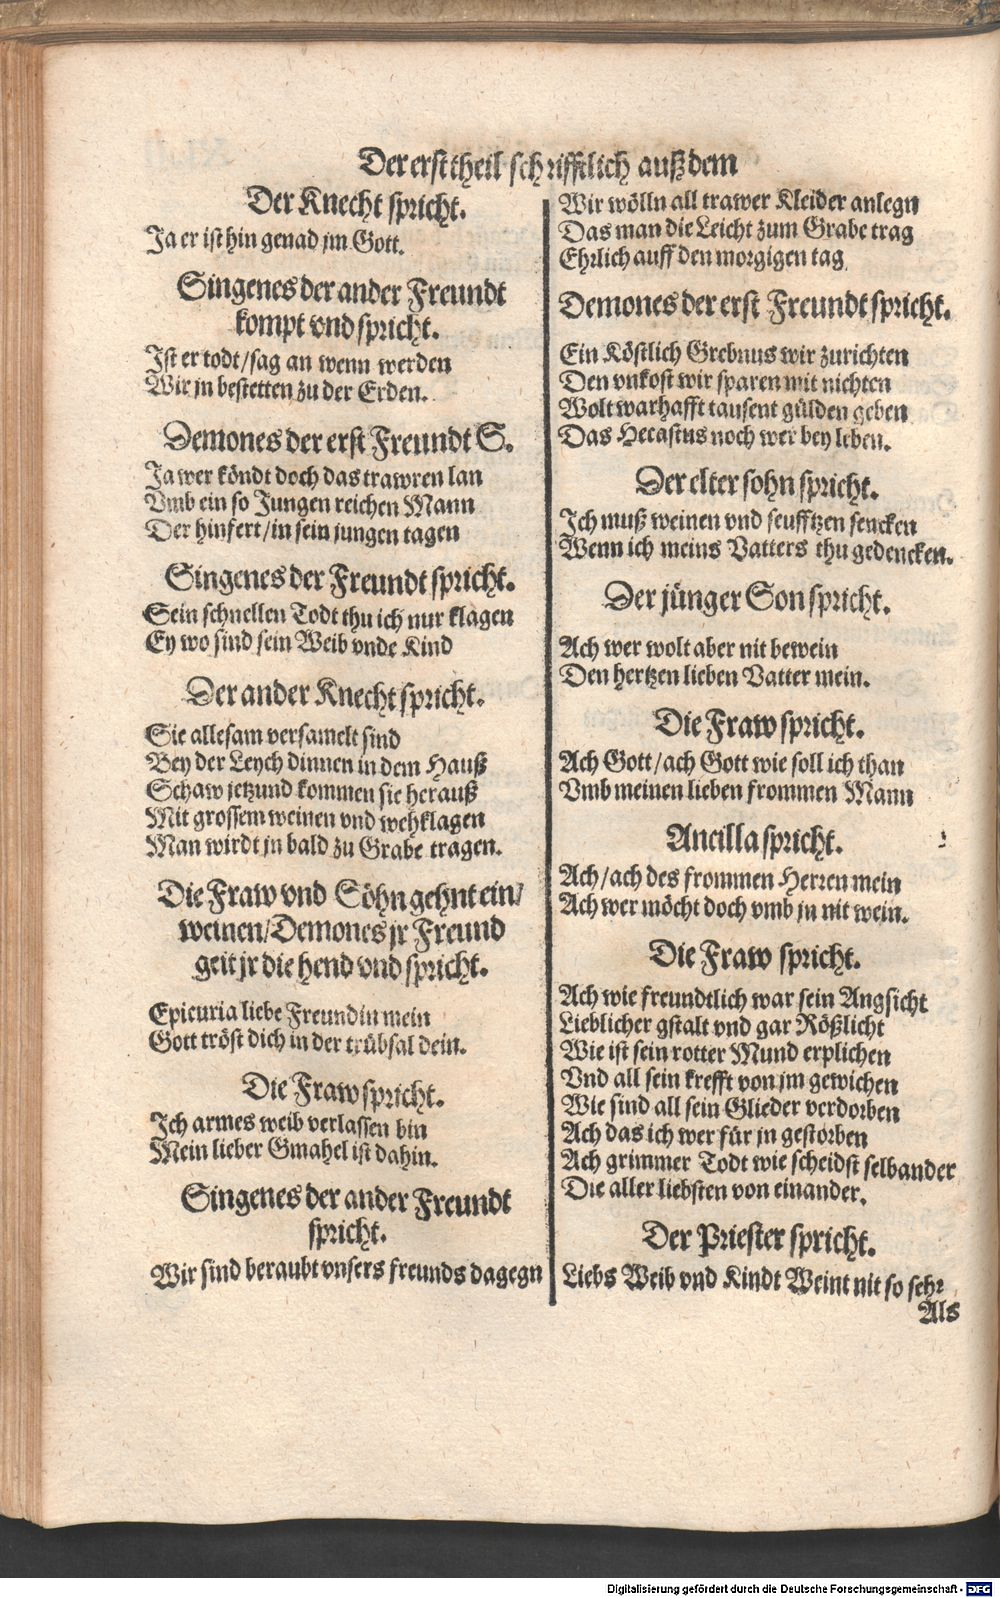 Der erst theil schrifftlich auß dem
Der Knecht spricht.
Ja er ist hin genad jm Gott.
Singenes der ander Freundt
kompt vnd spricht.
Ist er todt/sag an wenn werden
Wir jn bestetten zu der Erden.
Demones der erst Freundt S.
Ja wer köndt doch das trawren lan
Vmb ein so Jungen reichen Mann
Der hinfert/in sein jungen tagen
Singenes der Freundt spricht.
Sein schnellen Todt thu ich nur klagen
Ey wo sind sein Weib vnde Kind
Der ander Knecht spricht.
Sie allesam versamelt sind
Bey der Leych dinnen in dem Hauß
Schaw jetzund kommen sie herauß
Mit grossem weinen vnd wehklagen
Man wirdt jn bald zu Grabe tragen.
Die Fraw vnd Söhn gehnt ein/
weinen/Demones jr Freund
geit jr die hend vnd spricht.
Epicuria liebe Freundin mein
Gott tröst dich in der trübsal dein.
Die Fraw spricht.
Ich armes weib verlassen bin
Mein lieber Gmahel ist dahin.
Singenes der ander Freundt
spricht.
Wir sind beraubt vnsers freunds dagegn
Wir wölln all trawer Kleider anlegn
Das man die Leicht zum Grabe trag
Ehrlich auff den morgigen tag
Demones der erst Freundt spricht.
Ein Köstlich Grebnus wir zurichten
Den vnkost wir sparen mit nichten
Wolt warhafft tausent gülden geben
Das Hecastus noch wer bey leben.
Der elter sohn spricht.
Ich muß weinen vnd seufftzen sencken
Wenn ich meins Vatters thu gedencken.
Der jünger Son spricht.
Ach wer wolt aber nit bewein
Den hertzen lieben Vatter mein.
Die Fraw spricht.
Ach Gott/ach Gott wie soll ich than
Vmb meinen lieben frommen Mann
Ancilla spricht.
Ach/ach des frommen Herren mein
Ach wer möcht doch vmb jn nit wein.
Die Fraw spricht.
Ach wie freundtlich war sein Angsicht
Lieblicher gstalt vnd gar Rößlicht
Wie ist sein rotter Mund erplichen
Vnd all sein krefft von jm gewichen
Wie sind all sein Glieder verdorben
Ach das ich wer für jn gestorben
Ach grimmer Todt wie scheidst selbander
Die aller liebsten von einander.
Der Priester spricht.
Liebs Weib vnd Kindt Weint nit so sehr
Als
Digitalisierung gefördert durch die Deutsche Forschungsgemeinschaft - DFG